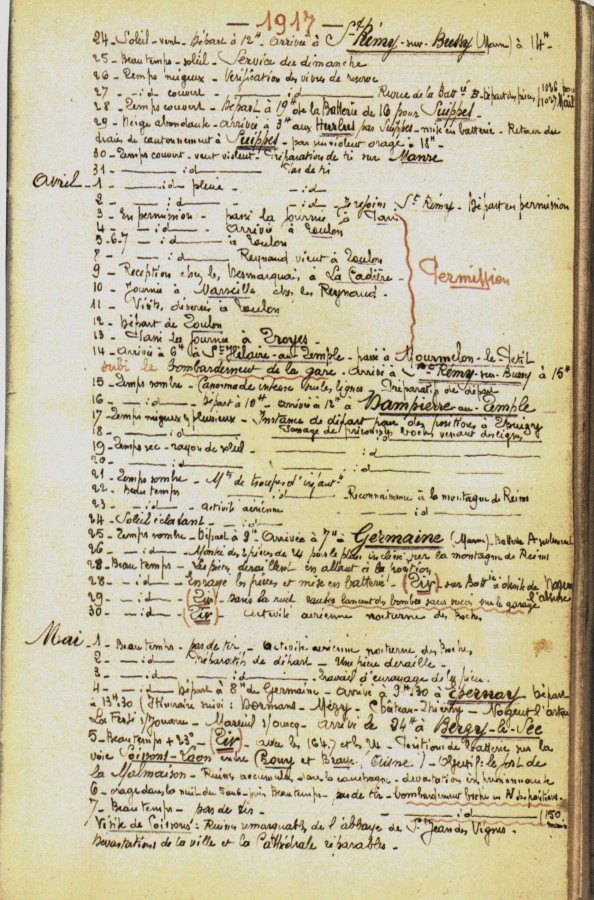 — 1917 —
24 - Soleil - vent - Départ à 12h - Arrivée à St Rémy - sur - Bussy (Marne) à 14h -
25 - Beau temps - soleil - Service du dimanche
26 - Temps nuageux - Vérification des vivres de réserve
27 - id couvert - id Revue de la Batt - Départ des pièces
28 - Temps couvert - Départ à 19h de la Batterie de 16 pour Suippes -
29 - Neige abondante - arrivée à 3h aux Hurlus par Suippes - mise en batterie - Retour au
de cantonnement à Suippes - par un violent orage à 18h -
30 - Temps couvert - vent violent - Préparation de tir sur
31 - id Pas de tir
Avril - 1 - id pluie - id
2 - id - Je rejoins St Rémy - Départ en permission
3 - En permission - passé la journée à Paris
4 - id - Arrivée à Toulon
5-6-7 - id à Toulon
8 - id Reynaud vient à Toulon
9 - Réception chez les Desmarquais, à La Cadière - Permission
10 - Journée à Marseille, chez les Reynaud -
11 - Visites diverses à Toulon
12 - Départ de Toulon
13 - Passé la journée à Troyes -
14 - Arrivée à 6h à St Hilaire - au - Temple - passé à Mourmelon - le - Petit
subi le bombardement de la gare - Arrivé à St Rémy - sur - Bussy à 15h
15 - Temps sombre - Canonnade intense sur les lignes - Préparatifs de départ
16 - id - Départ à 10h - arrivée à 12h à Dampierre - au - Temple
17 - Temps nuageux & pluvieux - Instance de départ pour des positions à
18 - id - Passage de prisonniers boches venant des lignes
19 - Temps sec - rayon de soleil - id
20 - id - id
21 - Temps sombre - Mts de troupes d'infant
22 - Beau temps - id - Reconnaissance à la montagne de Reims
23 - id - activité aérienne - id
24 - Soleil éclatant - id
25 - Temps sombre - Départ à 9h - Arrivée à 7h à Germaine (Marne) - Batterie
26 - id - Montée des pièces de 24 par le plan incliné sur la montagne de Reims
28 - Beau temps - Les pièces déraillent en allant à la position
28 - id - Enrayage les pièces et mise en batterie - (Tir) sur Batt à
29 - id - (Tir) - dans la nuit lancent des bombes sans succès sur le garage
30 - id - (Tir) Activité aérienne nocturne des Boches
Mai - 1 - Beau temps - pas de tir - activité aérienne nocturne des Boches
2 - id - Préparatifs de départ - Une pièce déraille -
3 - id - Travail d'enrayage de la pièce -
4 - id - Départ à 8h de Germaine - Arrivée à 9h30 à Épernay Départ
à 13h30 (Itinéraire suivi : Dormans - Mézy - Château - Thierry - Nogent l'Artaud
La Ferté s/Jouarre - Mareuil s/Ourcq - arrivé à 24h à Berzy - le - Sec
5 - Beau temps + 23° - (Tir) - avec les 16 4, 7 et les 24 - Positions de Batterie sur la
voie Soissons - Laon entre Crouy et Braye (Aisne) - Objectif : le fort de
la Malmaison - Ruines accumulées dans la campagne - dévastation impressionnante
6 - orage dans la nuit du 5 au 6 - puis Beau temps - pas de tir - bombardement boche en AV des positions -
7 - Beau temps - pas de tir - id - (150
Visite de Soissons : Ruines remarquables de l'abbaye de St Jean des Vignes -
Dévastations de la ville et la Cathédrale réparables -